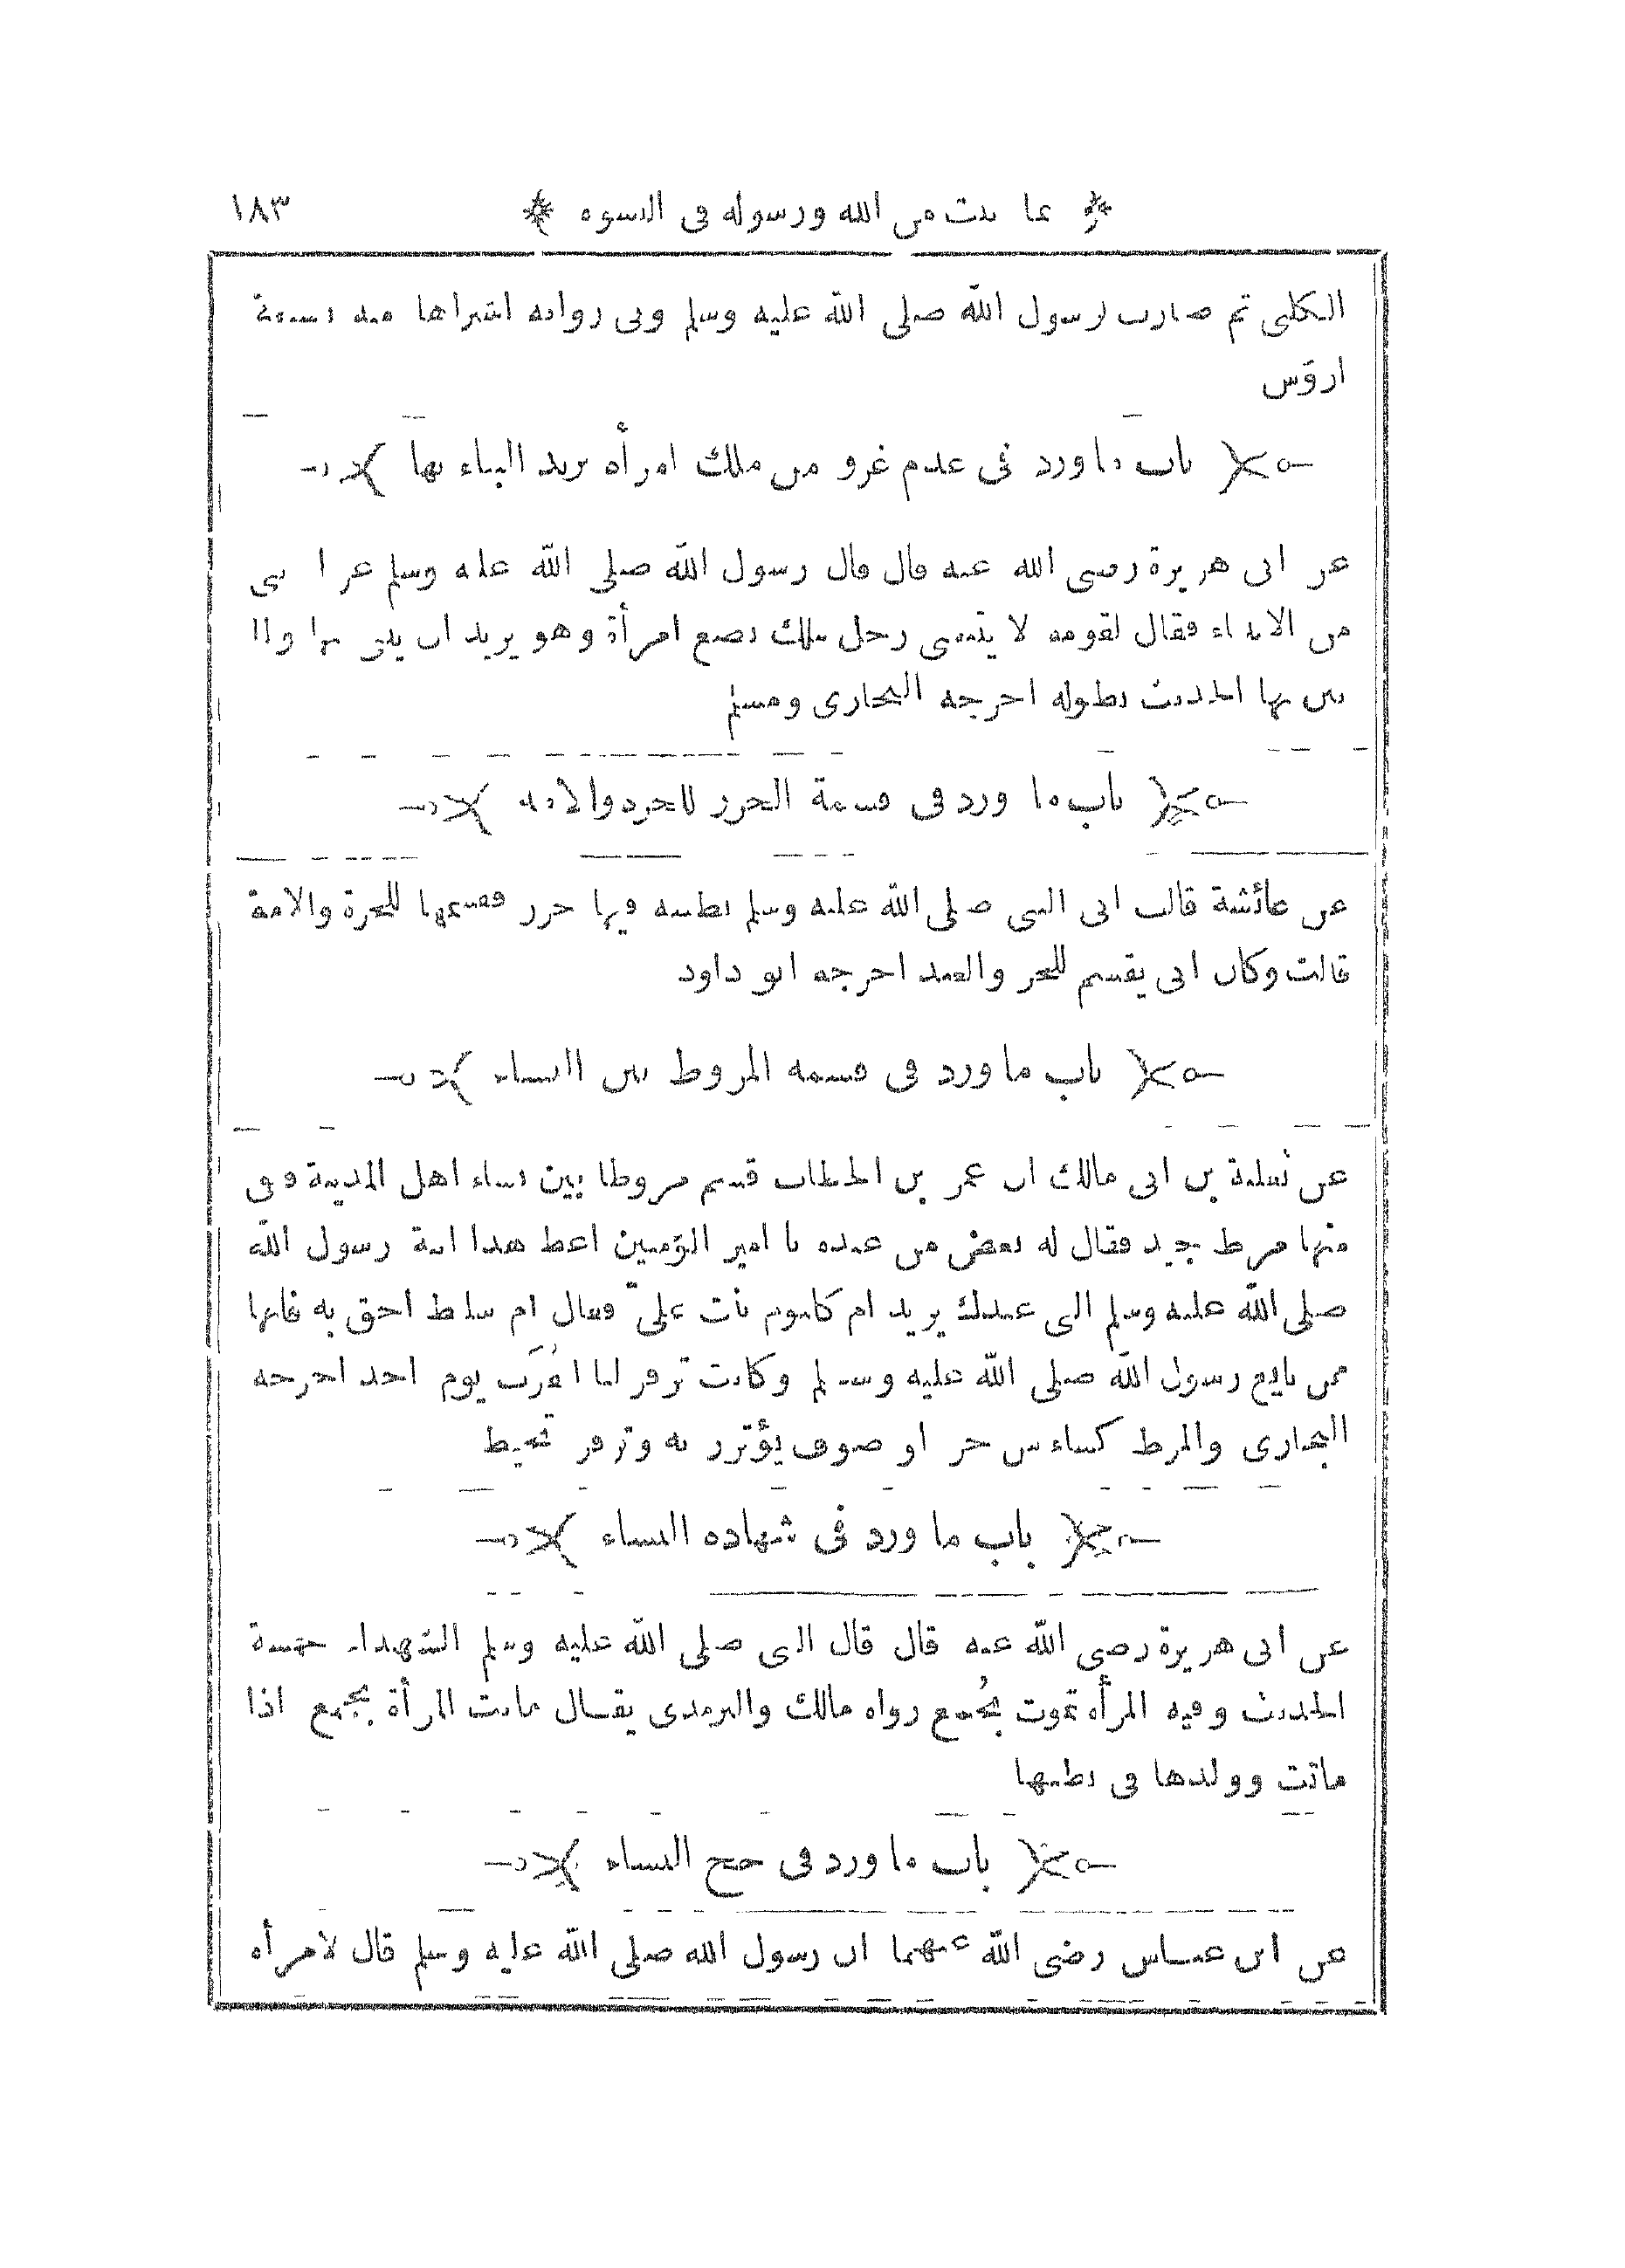 ﴿ بما ثبت من الله ورسوله في النسوة ﴾ ١٨٣
الكلبى ثم صارت لرسول الله صلى الله عليه وسلم وفى رواية اشتراها منه بسبعة
ارؤس
باب ما ورد فى عدم غزو من ملك امرأة يريد البناء بها
عن ابى هريرة رضى الله عنه قال قال رسول الله صلى الله عليه وسلم غزا نبى
من الانبياء فقال لقومه لا يتبعنى رجل ملك بضع امرأة وهو يريد ان يبنى بها ولما
يبن بها الحديث بطوله اخرجه البخارى ومسلم
باب ما ورد فى قسمة الخرز للحرة والامة
عن عائشة قالت اتى النبى صلى الله عليه وسلم بظبية فيها خرز فقسمها للحرة والامة
قالت وكان ابى يقسم للحر والعبد اخرجه ابو داود
باب ما ورد فى قسمة المروط بين النساء
عن ثعلبة بن ابى مالك ان عمر بن الخطاب قسم مروطا بين نساء اهل المدينة وبقى
منها مرط جيد فقال له بعض من عنده يا امير المؤمنين اعط هذا ابنة رسول الله
صلى الله عليه وسلم التى عندك يريد ام كلثوم بنت علىّ فقال ام سليط احق به فانها
ممن بايع رسول الله صلى الله عليه وسلم وكانت تزفر لنا القِرَب يوم احد اخرجه
البخارى والمرط كساء من خز او صوف يؤتزر به وتزفر تخيط
باب ما ورد فى شهادة النساء
عن ابى هريرة رضى الله عنه قال قال النبى صلى الله عليه وسلم الشهداء خمسة
الحديث وفيه المرأة تموت بجُمع رواه مالك والترمذى يقال ماتت المرأة بجمع اذا
ماتت وولدها فى بطنها
باب ما ورد فى حج النساء
عن ابن عباس رضى الله عنهما ان رسول الله صلى الله عليه وسلم قال لامرأة